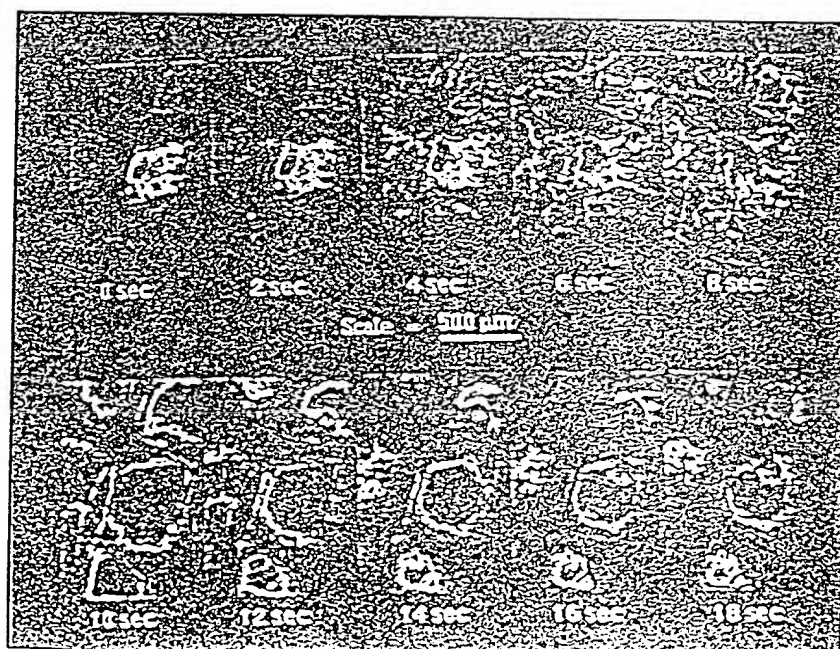 1 sec 2 sec 4 sec 6 sec 8 sec
Scale = 500 µm
10 sec 12 sec 14 sec 16 sec 18 sec